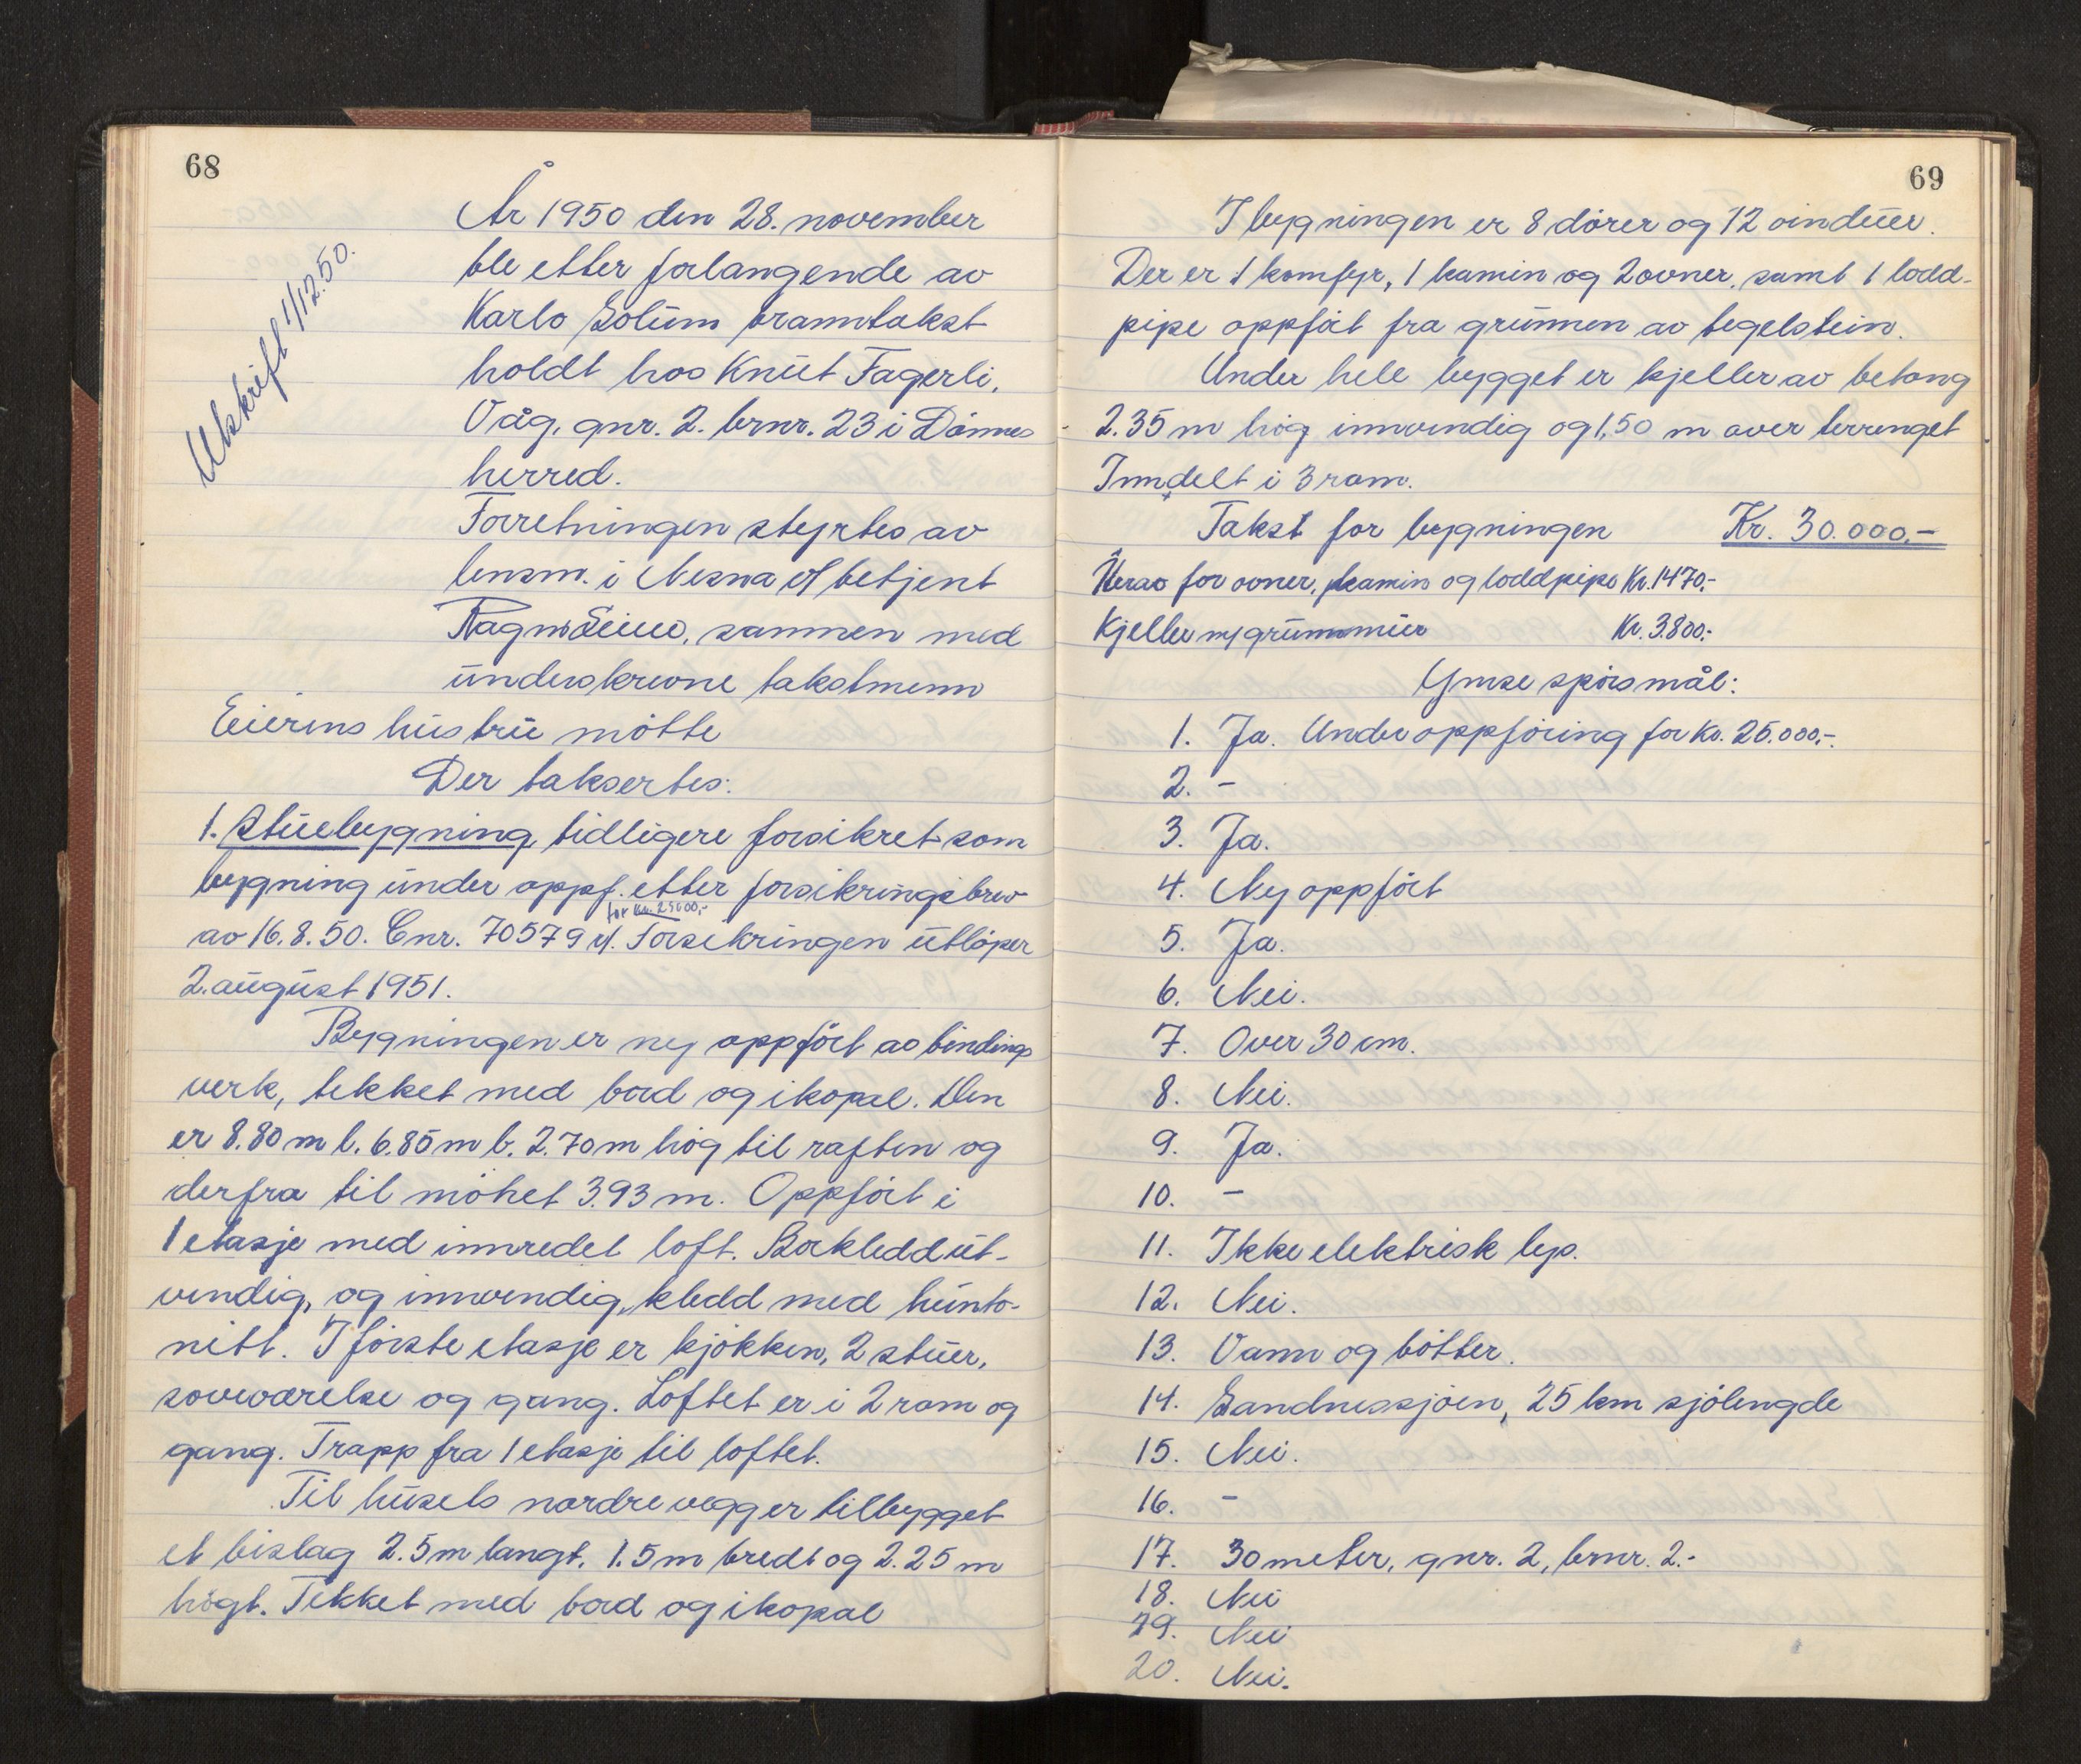 68
Utskrift 1/12.50.
År 1950 den 28. november
ble etter forlangende av
Karlo Solum branntakst
holdt hos Knut Fagerli,
Våg, gnr. 2. brnr. 23 i Dønnes
herred.
Forretningen styrtes av
lensm. i Nesna v/ betjent
Ragnv. sammen med
underskrevne takstmenn
Eierens hustru møtte
Der taksertes:
1. Stuebygning, tidligere forsikret som
bygning under oppf. etter forsikringsbrev
for kr. 25000,-
av 16.8.50. Cnr. 70579 Forsikringen utløper
2. august 1951.
Bygningen er ny oppført av bindings
verk, tekket med bord og ikopal. Den
er 8.80 m l. 6.85 m b. 2.70 m høg til raften og
derfra til mønet 3.93 m. Oppført i
1 etasje med innredet loft. Bordkledd ut-
vendig, og innvendig, kledd med hunto-
nitt. I første etasje er kjøkken, 2 stuer,
soveværelse og gang. Loftet er i 2 rom og
gang. Trapp fra 1 etasje til loftet.
Til husets nordre vegg er tilbygget
et bislag 2.5 m langt. 1.5 m bredt og 2.25 m
høgt. Tekket med bord og ikopal
69
I bygningen er 8 dører og 12 vinduer.
Der er 1 komfyr, 1 kamin og 2 ovner, samt 1 lodd-
pipe oppført fra grunnen av tegelstein.
Under hele bygget er kjeller av betong
2.35 m høg innvendig og 1,50 m over terrenget
Inndelt i 3 rom.
Takst for bygningen Kr. 30.000.-
Herav for ovner, kamin og loddpipe Kr. 1470.-
Kjeller m/grunnmur Kr. 3.800.-
Ymse spørsmål:
1. Ja. Under oppføring for Kr. 25.000,-.
2. -
3. Ja.
4. Ny oppført
5. Ja.
6. Nei.
7. Over 30 cm.
8. Nei.
9. Ja.
10. -
11. Ikke elektrisk lys.
12. Nei.
13. Vann og bøtter.
14. Sandnessjøen, 25 km sjølengde
15. Nei.
16. -
17. 30 meter, gnr. 2, brnr. 2.-
18. Nei
19. Nei
20. Nei.